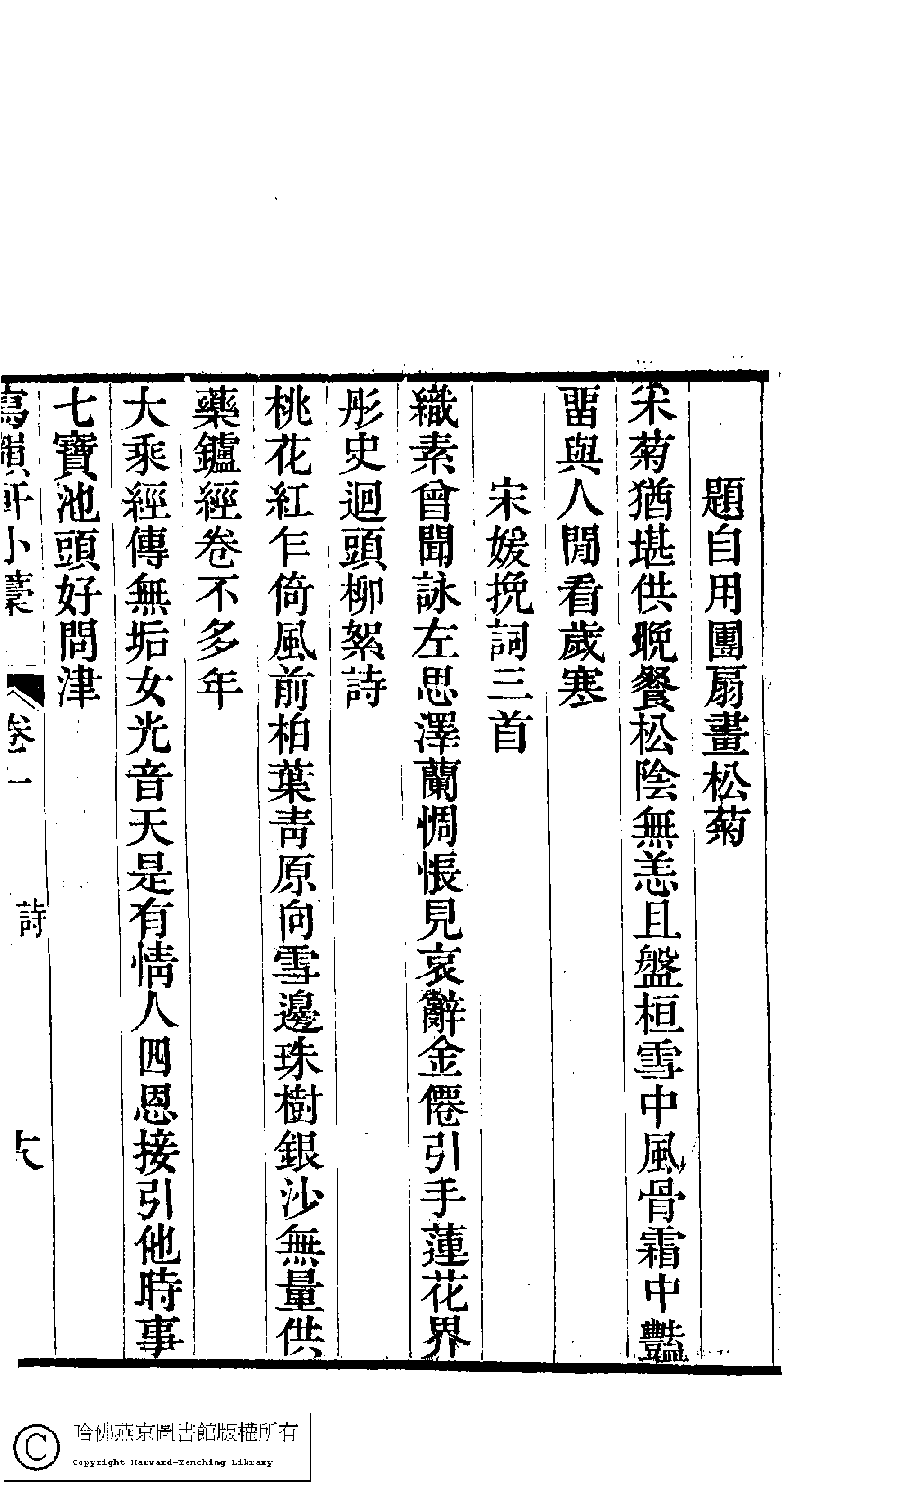 題自用團扇畫松菊
采菊猶堪供晚餐松陰無恙且盤桓雪中風骨霜中豔
畱與人閒看歲寒
宋媛挽詞三首
織素曾聞詠左思澤蘭惆悵見哀辭金僊引手蓮花界
彤史迴頭柳絮詩
桃花紅乍倚風前柏葉靑原向雪邊珠樹銀沙無量供
藥鑪經卷不多年
大乘經傳無垢女光音天是有情人四恩接引他時事
七寶池頭好問津
寫韻軒小藁 卷一 詩
哈佛燕京圖書館版權所有
Copyright Harvard-Yenching Library